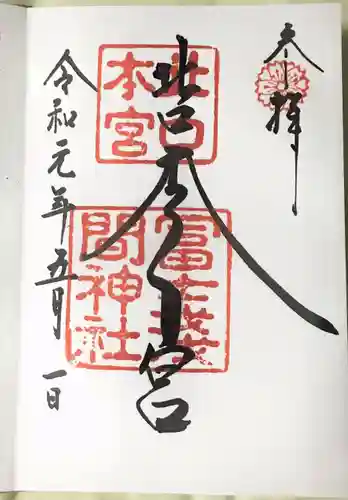 奉拝
北口本宮
北口
本宮
冨士浅
間神社
令和元年五月一日